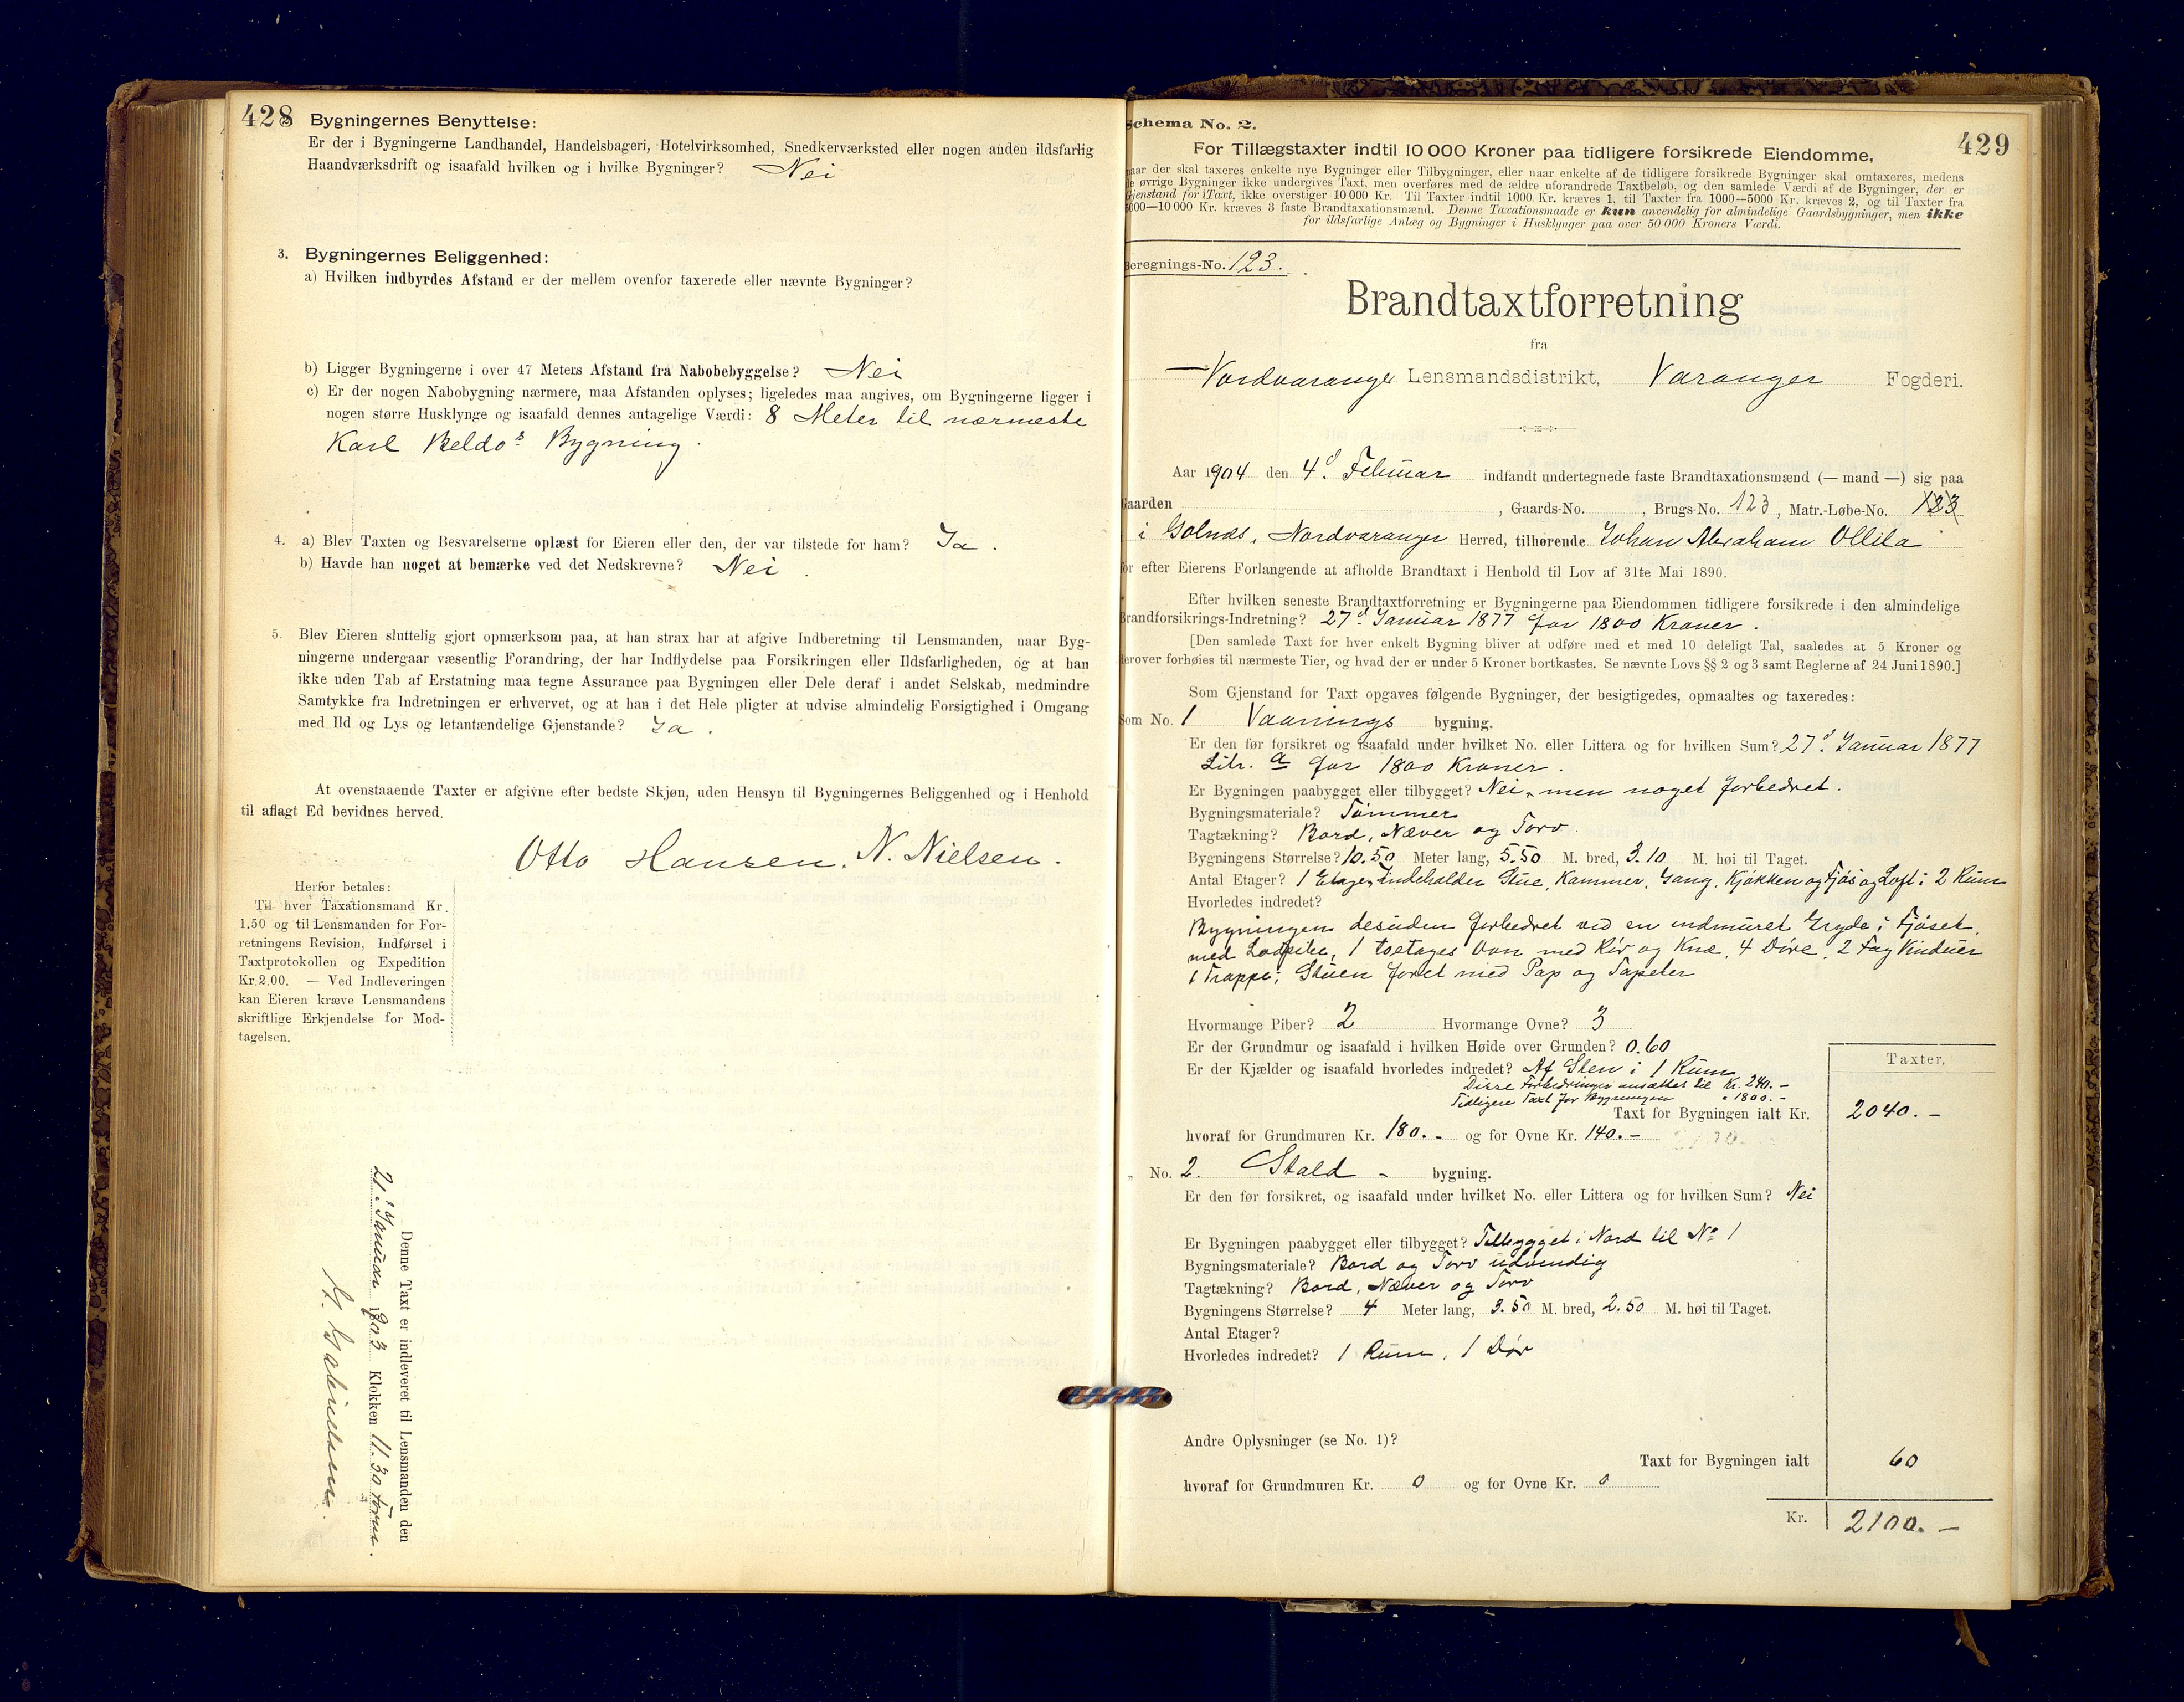 428
Bygningernes Benyttelse:
Er der i Bygningerne Landhandel, Handelsbageri, Hotelvirksomhed, Snedkerværksted eller nogen anden ildsfarlig
Haandværksdrift og isaafald hvilken og i hvilke Bygninger? Nei
3. Bygningernes Beliggenhed:
a) Hvilken indbyrdes Afstand er der mellem ovenfor taxerede eller nævnte Bygninger?
b) Ligger Bygningerne i over 47 Meters Afstand fra Nabobebyggelse? Nei
c) Er der nogen Nabobygning nærmere, maa Afstanden oplyses; ligeledes maa angives, om Bygningerne ligger i
nogen større Husklynge og isaafald dennes antagelige Værdi: 8 Meter til nærmeste
Karl Beldos Bygning.
4. a) Blev Taxten og Besvarelserne oplæst for Eieren eller den, der var tilstede for ham? Ja.
b) Havde han noget at bemærke ved det Nedskrevne? Nei.
5. Blev Eieren sluttelig gjort opmærksom paa, at han strax har at afgive Indberetning til Lensmanden, naar Byg-
ningerne undergaar væsentlig Forandring, der har Indflydelse paa Forsikringen eller Ildsfarligheden, og at han
ikke uden Tab af Erstatning maa tegne Assurance paa Bygningen eller Dele deraf i andet Selskab, medmindre
Samtykke fra Indretningen er erhvervet, og at han i det Hele pligter at udvise almindelig Forsigtighed i Omgang
med Ild og Lys og letantændelige Gjenstande? Ja.
At ovenstaaende Taxter er afgivne efter bedste Skjøn, uden Hensyn til Bygningernes Beliggenhed og i Henhold
til aflagt Ed bevidnes herved.
Otto Hansen. N. Nielsen.
Herfor betales:
Til hver Taxationsmand Kr.
1.50 og til Lensmanden for For-
retningens Revision, Indførsel i
Taxtprotokollen og Expedition
Kr. 2.00. — Ved Indleveringen
kan Eieren kræve Lensmandens
skriftlige Erkjendelse for Mod-
tagelsen.
Denne Taxt er indleveret til Lensmanden den
21. Januar 1903 Klokken 11.30 Form.
Gabrielsen.
Schema No. 2.
429
For Tillægstaxter indtil 10 000 Kroner paa tidligere forsikrede Eiendomme,
naar der skal taxeres enkelte nye Bygninger eller Tilbygninger, eller naar enkelte af de tidligere forsikrede Bygninger skal omtaxeres, medens
de øvrige Bygninger ikke undergives Taxt, men overføres med de ældre uforandrede Taxtbeløb, og den samlede Værdi af de Bygninger, der er
Gjenstand for Taxt, ikke overstiger 10 000 Kr. Til Taxter indtil 1000 Kr. kræves 1, til Taxter fra 1000—5000 Kr. kræves 2, og til Taxter fra
5000—10 000 Kr. kræves 3 faste Brandtaxationsmænd. Denne Taxationsmaade er kun anvendelig for almindelige Gaardsbygninger, men ikke
for ildsfarlige Anlæg og Bygninger i Husklynger paa over 50 000 Kroners Værdi.
Beregnings-No. 123.
Brandtaxtforretning
fra
Nordvaranger Lensmandsdistrikt, Varanger Fogderi.
Aar 1904 den 4d. Februar indfandt undertegnede faste Brandtaxationsmænd (— mand —) sig paa
Gaarden , Gaards-No. , Brugs-No. 123, Matr.-Løbe-No. 123
i Golnæs, Nordvaranger Herred, tilhørende Johan Abraham Ollila
for efter Eierens Forlangende at afholde Brandtaxt i Henhold til Lov af 31te Mai 1890.
Efter hvilken seneste Brandtaxtforretning er Bygningerne paa Eiendommen tidligere forsikrede i den almindelige
Brandforsikrings-Indretning? 27d Januar 1877 for 1800 Kroner.
[Den samlede Taxt for hver enkelt Bygning bliver at udføre med et med 10 deleligt Tal, saaledes at 5 Kroner og
derover forhøies til nærmeste Tier, og hvad der er under 5 Kroner bortkastes. Se nævnte Lovs §§ 2 og 3 samt Reglerne af 24 Juni 1890.]
Som Gjenstand for Taxt opgaves følgende Bygninger, der besigtigedes, opmaaltes og taxeredes:
Som No. 1 Vaanings bygning.
Er den før forsikret og isaafald under hvilket No. eller Littera og for hvilken Sum? 27d. Januar 1877
Litr. a for 1800 Kroner.
Er Bygningen paabygget eller tilbygget? Nei, men noget forbedret.
Bygningsmateriale? Tømmer
Tagtækning? Bord, Næver og Torv.
Bygningens Størrelse? 10.50 Meter lang, 5.50 M. bred, 3.10 M. høi til Taget.
Antal Etager? 1 Etage, Indeholder Stue, Kammer, Gang, Kjøkken og Fjøs og Loft i 2 Rum
Hvorledes indredet?
Bygningen desuden forbedret ved en indmuret Gryde i Fjøset,
med Lodpibe, 1 toetages Ovn med Rør og Knæ, 4 Døre, 2 Fag Vinduer
1 Trappe; Stuen foret med Pap og Tapeter
Hvormange Piber? 2 Hvormange Ovne? 3
Er der Grundmur og isaafald i hvilken Høide over Grunden? 0.60
Er der Kjælder og isaafald hvorledes indredet? Af Sten i 1 Rum
Disse Forbedringer ansættes til Kr. 240.-
Tidligere Taxt for Bygningen " 1800.-
Taxter.
Taxt for Bygningen ialt Kr. 2040.-
hvoraf for Grundmuren Kr. 180.- og for Ovne Kr. 140.-
" No. 2. Stald - bygning.
Er den før forsikret, og isaafald under hvilket No. eller Littera og for hvilken Sum? Nei
Er Bygningen paabygget eller tilbygget? Tilbygget i Nord til No 1
Bygningsmateriale? Bord og Torv udvendig
Tagtækning? Bord, Næver og Torv
Bygningens Størrelse? 4 Meter lang, 3.50 M. bred, 2.50 M. høi til Taget.
Antal Etager?
Hvorledes indredet? 1 Rum, 1 Dør
Andre Oplysninger (se No. 1)?
Taxt for Bygningen ialt 60
hvoraf for Grundmuren Kr. 0 og for Ovne Kr. 0
Kr. 2100.-